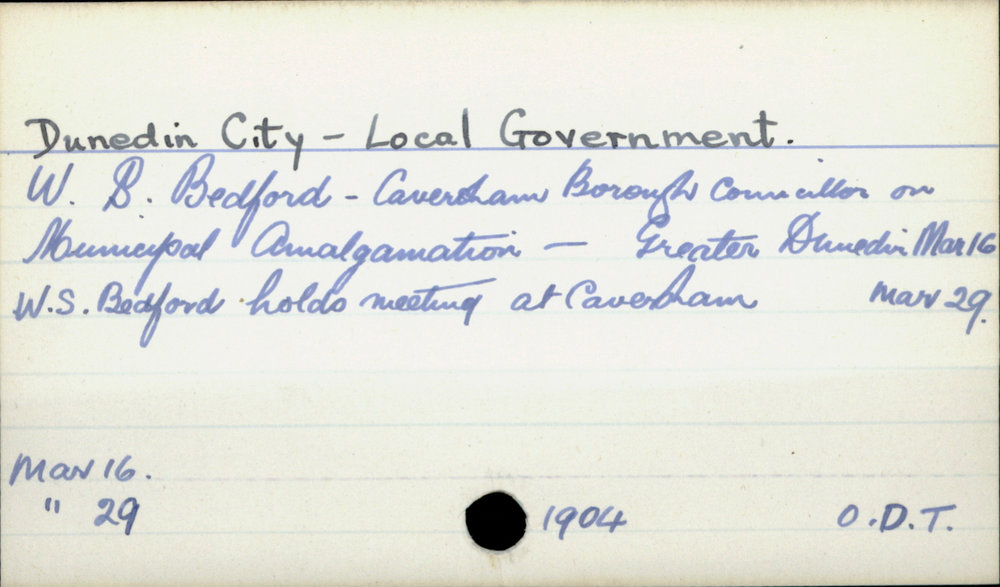 Dunedin City - Local Government.
W. S. Bedford - Caversham Borough Councillor on
Municipal Amalgamation — Greater Dunedin Mar 16
W.S. Bedford holds meeting at Caversham Mar 29.
Mar 16.
" 29
1904 O.D.T.